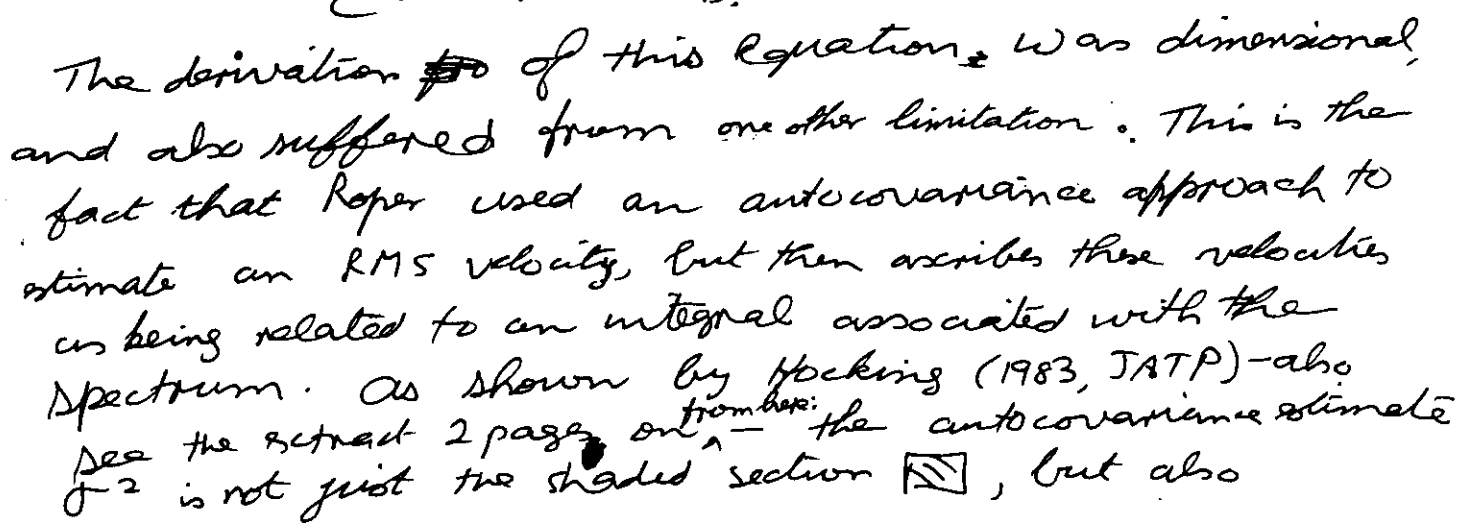 The derivation of this equation, was dimensional,
and also suffered from one other limitation. This is the
fact that Roper used an autocovariance approach to
estimate an RMS velocity, but then ascribes these velocities
as being related to an integral associated with the
spectrum. As shown by Hocking (1983, JATP) - also
see the extract 2 pages on from here: - the autocovariance estimate
σ² is not just the shaded section, but also